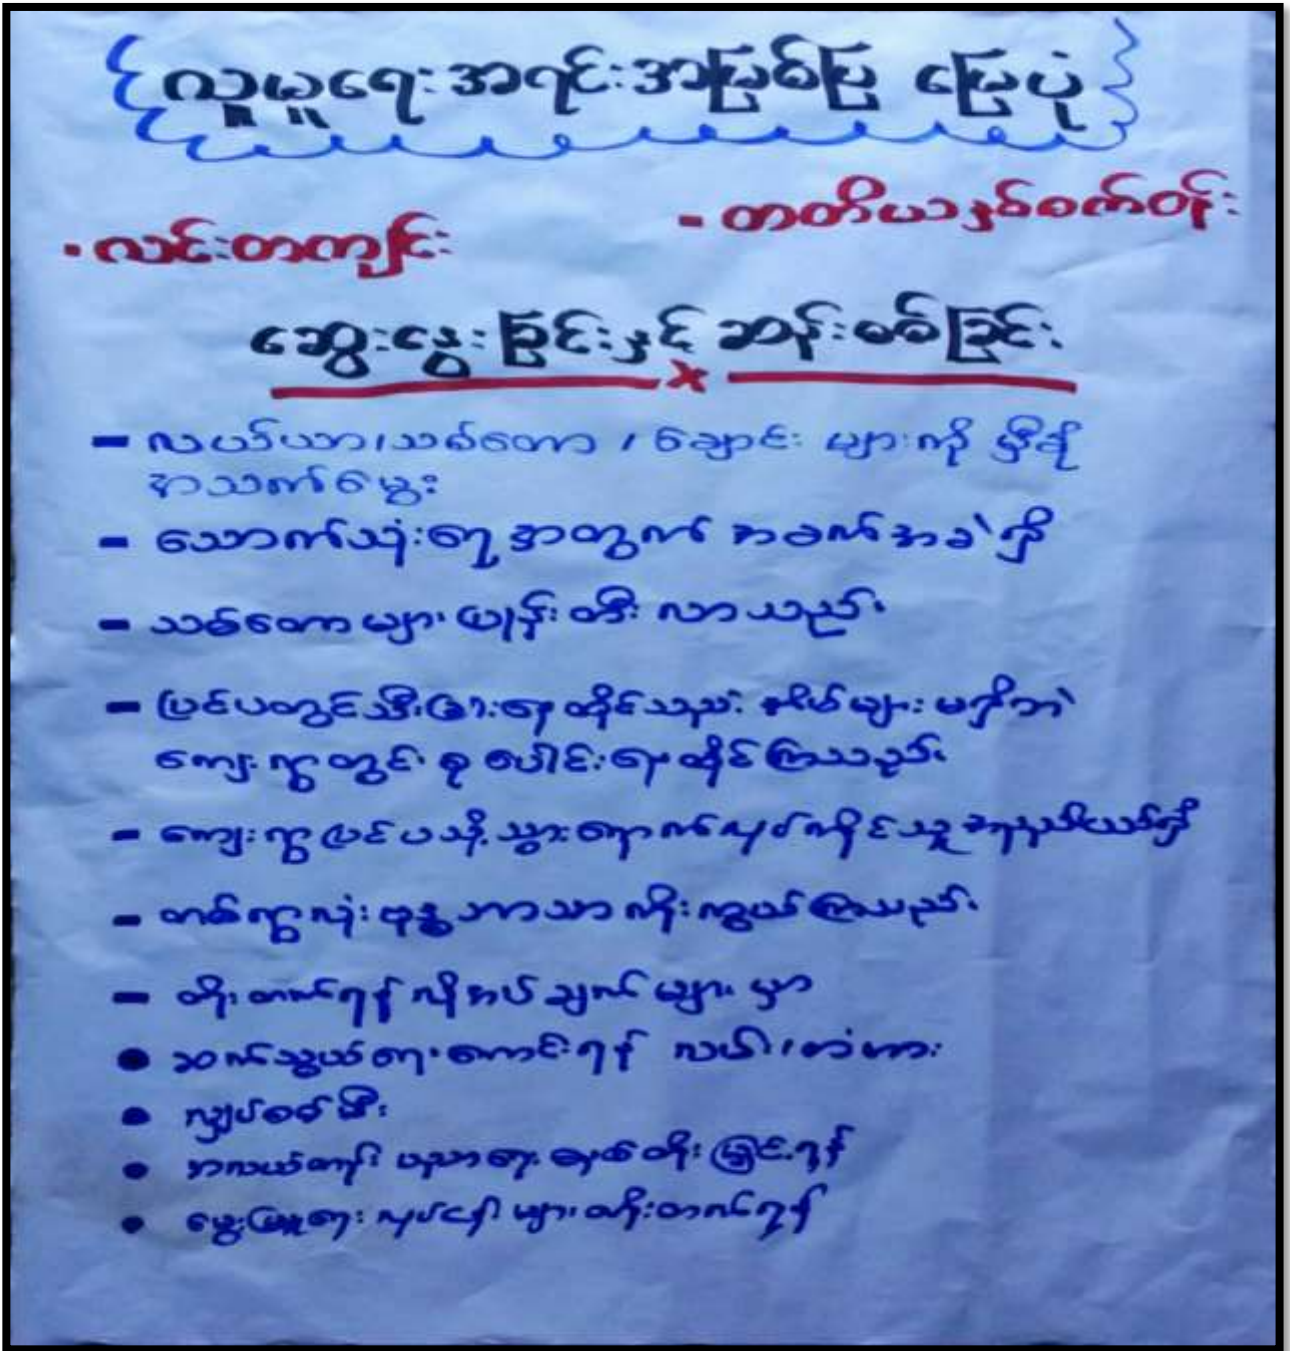 လူမှုရေးအရင်းအမြစ်ပြ မြေပုံ
- လင်းတကျင်း
- တတိယနှစ်စက်ဝန်း
ဆွေးနွေးခြင်းနှင့် ဆန်းစစ်ခြင်း
- လယ်ယာ၊သစ်တော ၊ ချောင်း များကို မှီခို
အသက်မွေး
- သောက်သုံးရေ အတွက် အခက်အခဲရှိ
- သစ်တောများ ပြုန်းတီး လာသည်။
- ပြင်ပတွင်သီးခြားနေထိုင်သည့် အိမ်များ မရှိဘဲ
ကျေးရွာတွင် စုပေါင်းနေထိုင်ကြသည်။
- ကျေးရွာပြင်ပသို့ သွားရောက်လုပ်ကိုင်သူ အနည်းငယ်ရှိ
- တစ်ရွာလုံး ဗုဒ္ဓဘာသာ ကိုးကွယ်ကြသည်။
- တိုးတက်ရန် လိုအပ်ချက်များ မှာ
• ဆက်သွယ်ရေးကောင်းရန် လမ်း၊တံတား
• လျှပ်စစ်မီး
• အလယ်တန်း ပညာရေး အဆင့်တိုးမြှင့်ရန်
• မွေးမြူရေး လုပ်ငန်းများ တိုးတက်ရန်